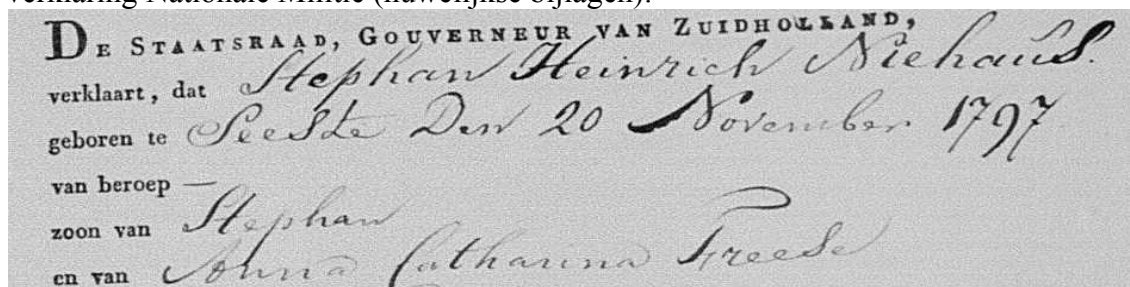 verklaring Nationale Militie (huwelijkse bijlagen):
DE STAATSRAAD, GOUVERNEUR VAN ZUIDHOLLAND,
verklaart, dat Stephan Heinrich Niehaus.
geboren te Seeste Den 20 November 1797
van beroep —
zoon van Stephan
en van Anna Catharina Freese